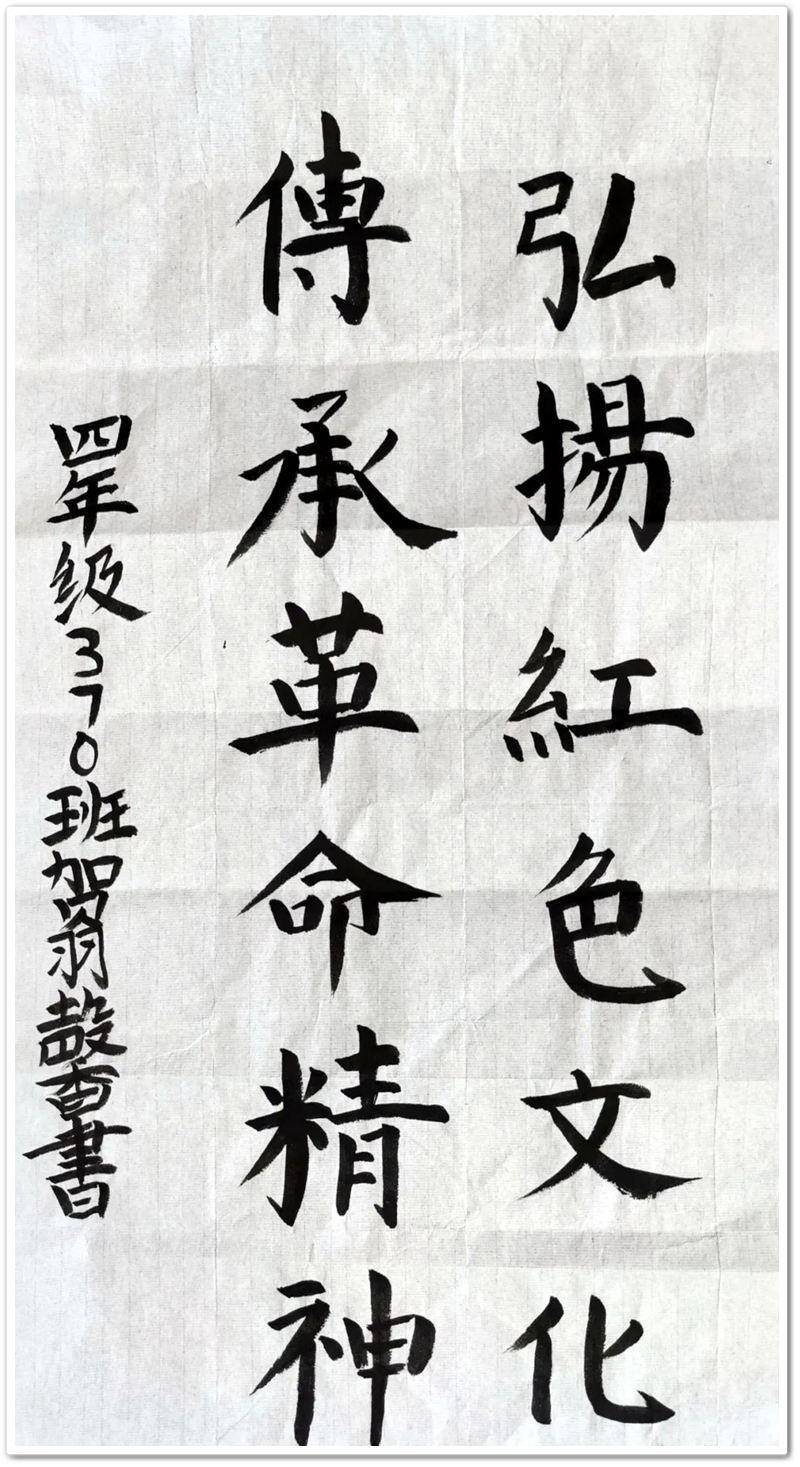 弘揚紅色文化
傳承革命精神
四年级370班贺翁馨書